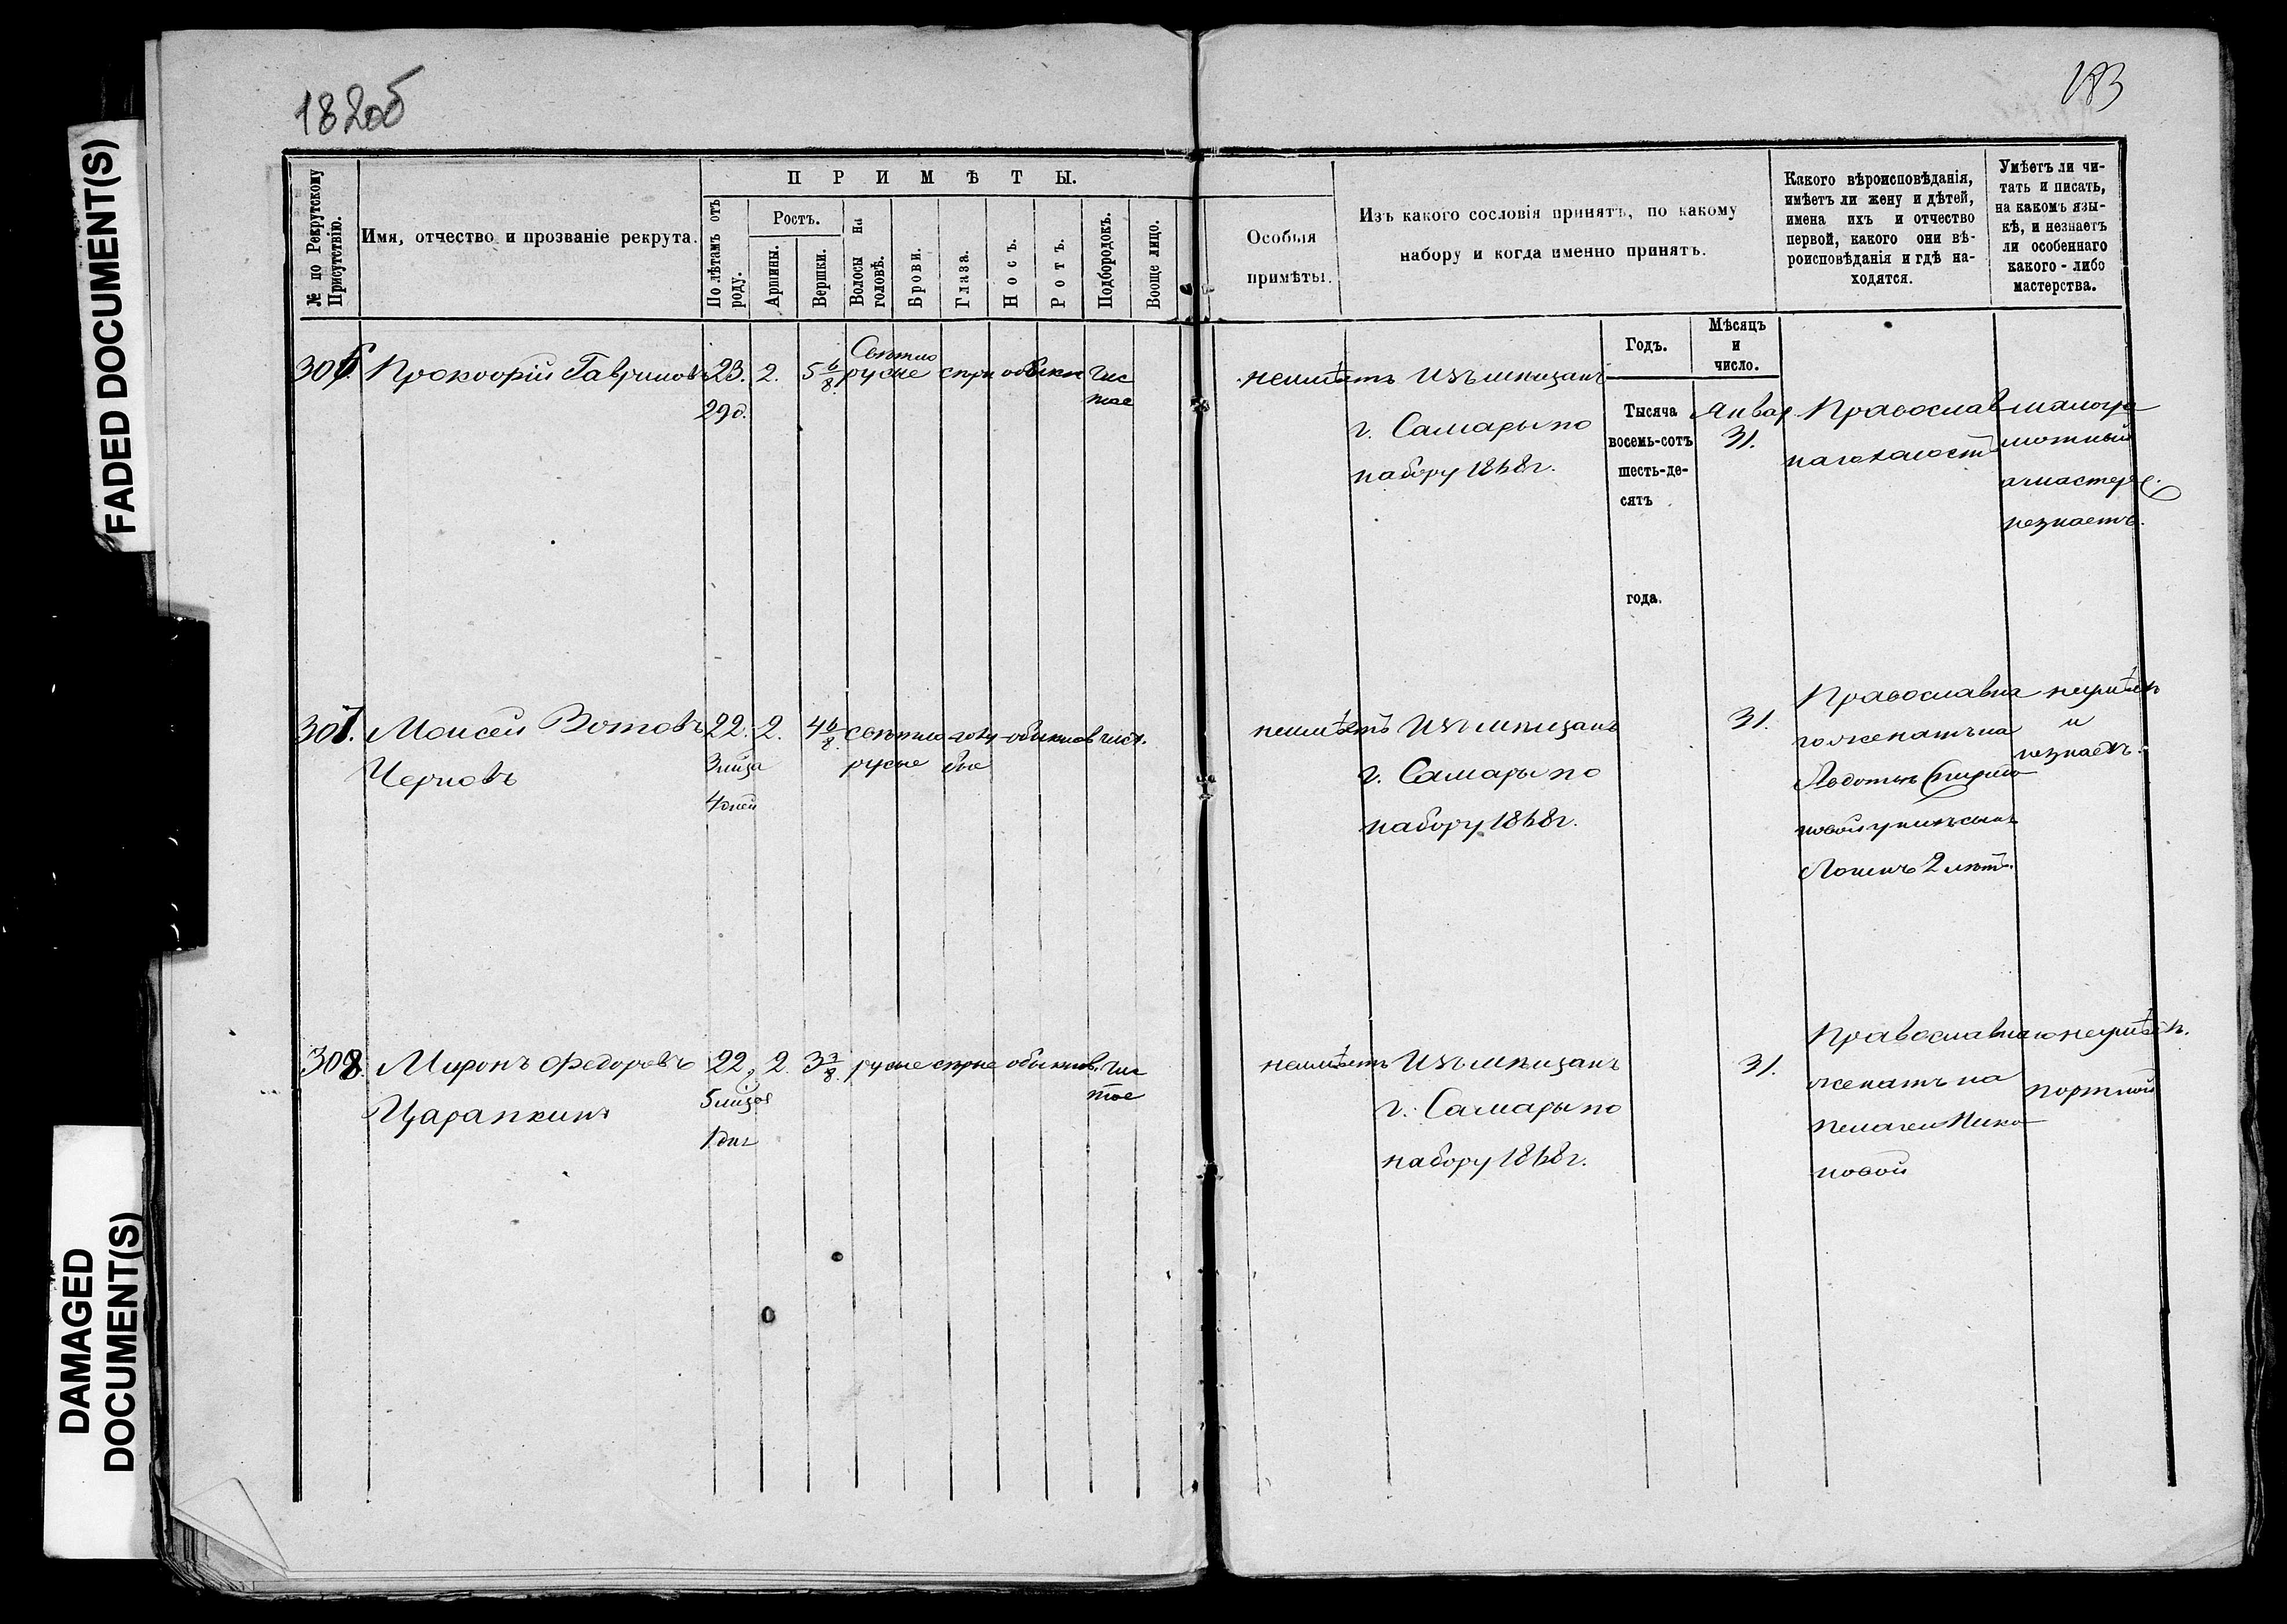 182об
183
FADED DOCUMENT(S)
DAMAGED
DOCUMENT(S)
№ по Рекрутскому
Присутствію.
Имя, отчество и прозваніе рекрута.
ПРИМѢТЫ.
По лѣтамъ отъ
роду.
Ростъ.
Аршины.
Вершки.
Волосы на
головѣ.
Брови.
Глаза.
Носъ.
Ротъ.
Подбородокъ.
Вооще лицо.
Особыя
примѣты.
Изъ какого сословія принятъ, по какому
набору и когда именно принятъ.
Какого вѣроисповѣданія,
имѣетъ ли жену и дѣтей,
имена ихъ и отчество
первой, какого они вѣ-
роисповѣданія и гдѣ на-
ходятся.
Умѣетъ ли чи-
тать и писать,
на какомъ язы-
кѣ, и незнаетъ
ли особеннаго
какого-либо
мастерства.
Годъ.
Мѣсяцъ
и
число.
306. Прокофій Гавриловъ 23. 2. 5 6/8. Свѣтло
русые сѣрые обыкн Чис
тое
29д.
неимѣетъ Изъ мѣщанъ
г. Самары по
набору 1868г.
Тысяча
восемь-сотъ
шесть-де-
сятъ
года.
Январ
31.
Православ
наго холостъ
малогра
мотный
а мастерс.
незнаетъ.
307. Моисей Зотовъ 22. 2. 4 6/8. свѣтло голу обыкнов чист.
Черновъ 3 м-ца русые бые
4 дней
неимѣетъ Изъ мѣщанъ
г. Самары по
набору 1868г.
31.
Православна
го женатъ на
Авдотьѣ Спиридо
новой у нихъ сынъ
Логинъ 2 лѣтъ.
неумѣетъ
и
незнаетъ.
308. Миронъ Федоровъ 22, 2. 3 7/8. русые сѣрые обыкнов. Чис
тое
Царапкинъ 5 м-цов
1 дня
неимѣетъ Изъ мѣщанъ
г. Самары по
набору 1868г.
31.
Православнаго
женатъ на
Пелагеи Нико
новой
неумѣетъ.
портной